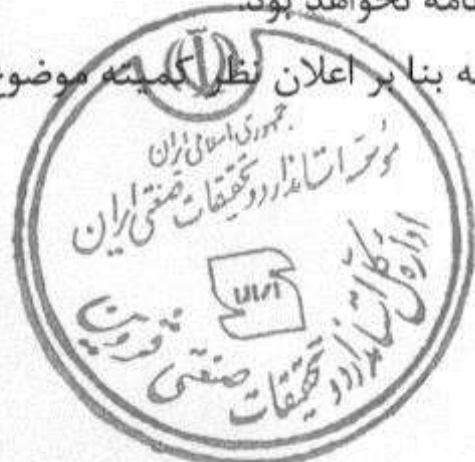 نامه نخواهد بود.
ه بنا بر اعلان نظر کمیته موضوع
جمهوری اسلامی ایران
مؤسسه استاندارد و تحقیقات صنعتی ایران
اداره کل استاندارد و تحقیقات صنعتی قزوین